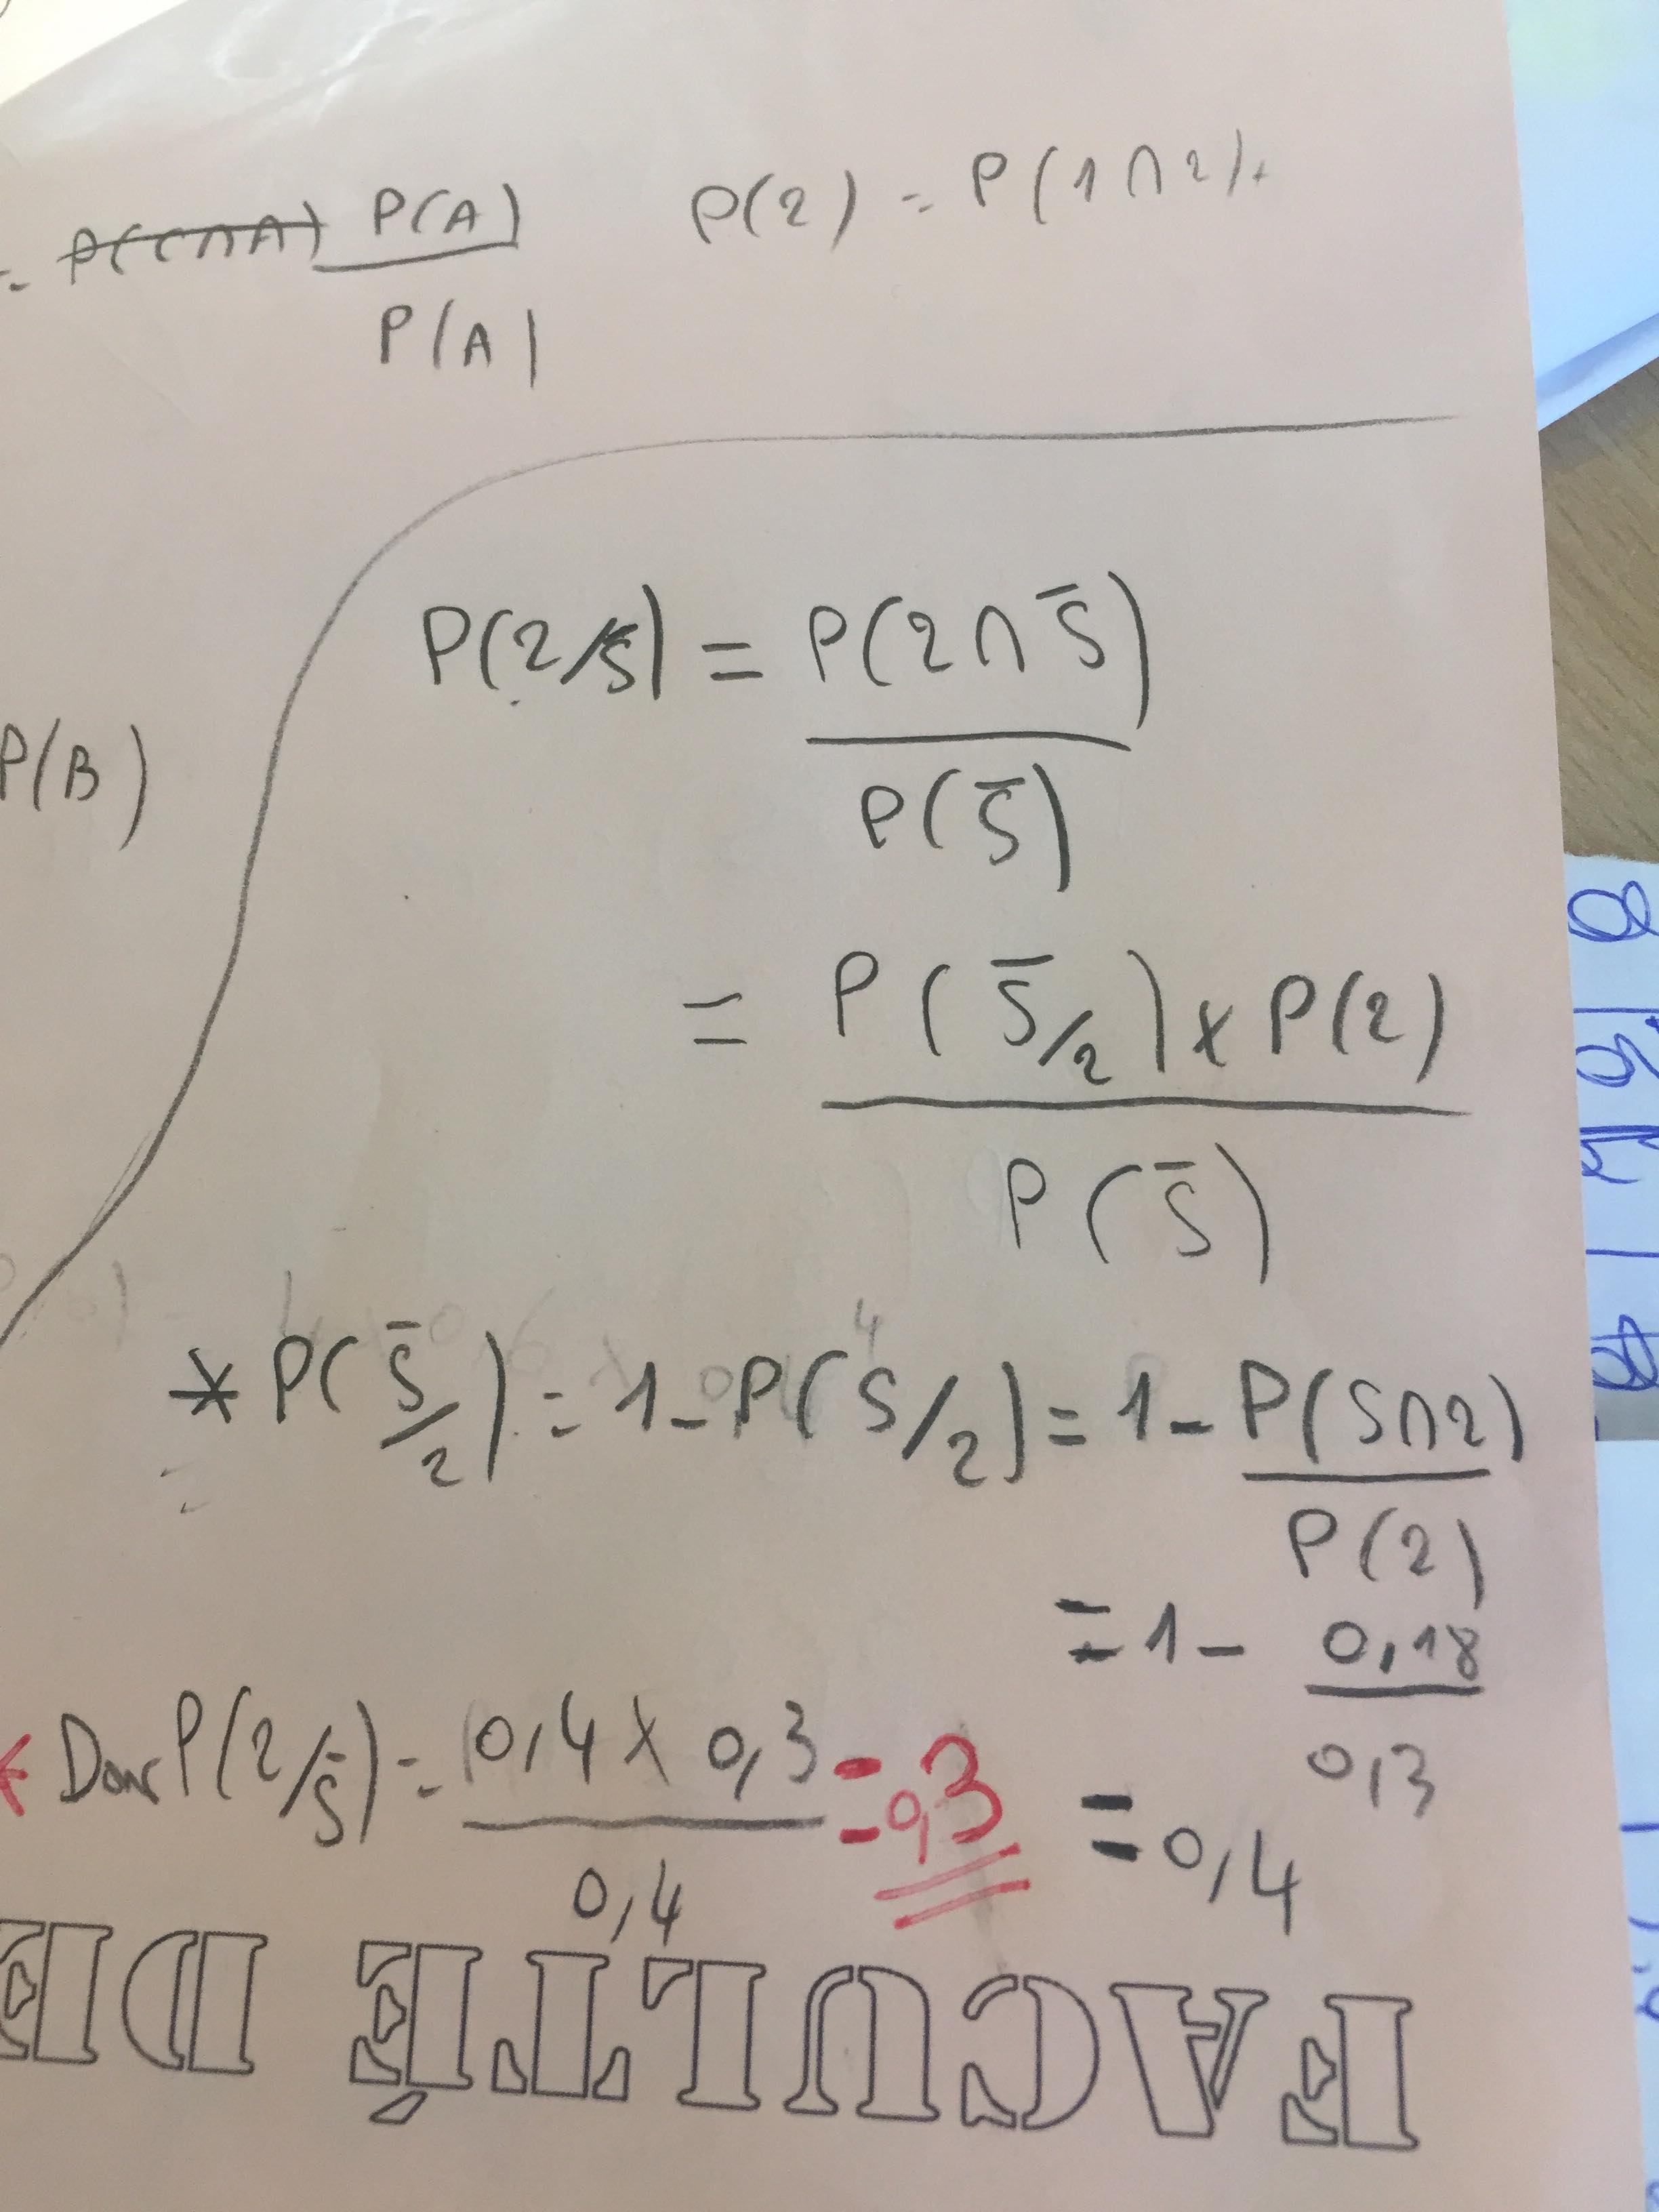 = P(C∩A) P(A)
P(A)
P(2) = P(1∩2)+
P(B)
P(2/S̄) = P(2∩S̄)
P(S̄)
= P(S̄/2) x P(2)
P(S̄)
4
* P(S̄/2) = 1 - P(S/2) = 1 - P(S∩2)
P(2)
= 1 - 0,18
0,3
= 0,4
Donc P(2/S̄) = 0,4 x 0,3 = 0,3
0,4
FACULTÉ DE